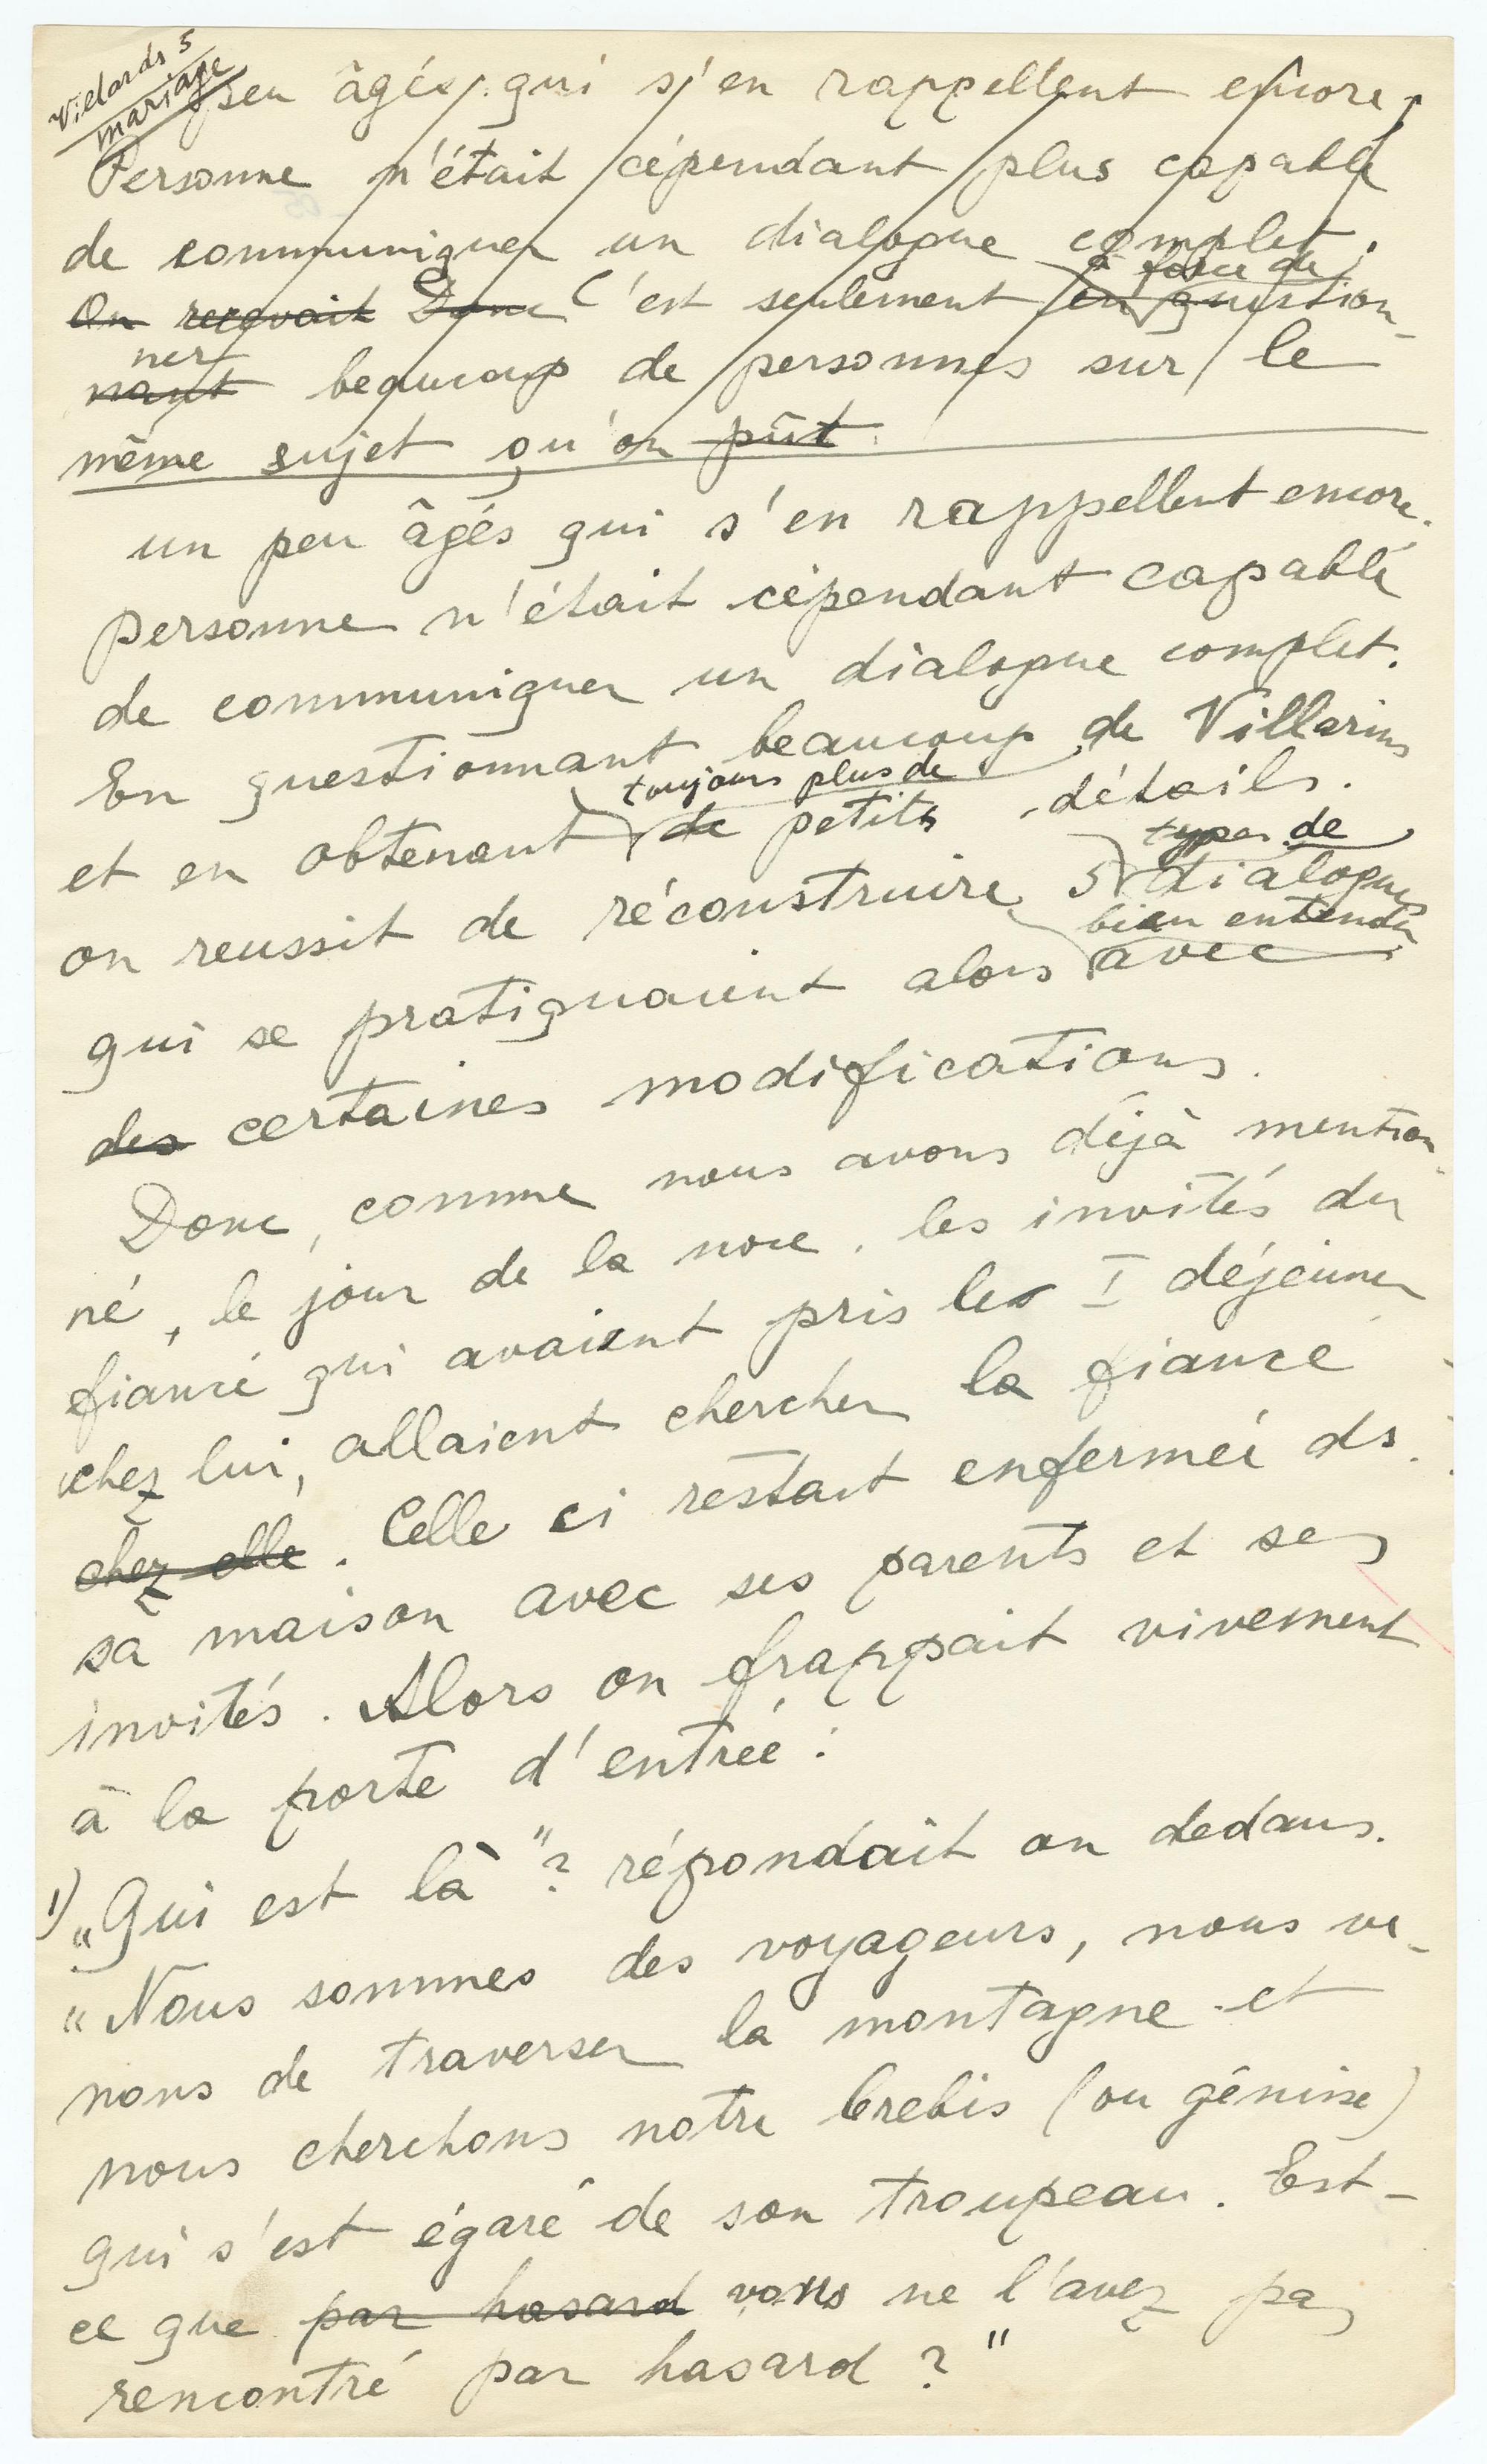 Vielards 5
mariage
peu âgés, qui s'en rappellent encore,
Personne n'était cépendant plus capable
de communiquer un dialogue complet.
à force de
On recevait Donc C'est seulement en question-
ner
nant beaucoup de personnes sur le
même sujet qu'on pût.
un peu âgés qui s'en rappellent encore.
personne n'était cépendant capable
de communiquer un dialogue complet.
En questionnant beaucoup de Villarins
toujours plus de
et en obtenant de petits détails.
types de
on reussit de réconstruire 5 dialogues
bien entendu
qui se pratiquaient alors avec
des certaines modifications.
Donc, comme nous avons déjà mention-
né, le jour de la noce, les invités du
fiancé qui avaient pris le I déjeuner
chez lui, allaient chercher la fiancé
chez elle. Celle ci restait enfermée ds.
sa maison avec ses parents et ses
invités. Alors on frappait vivement
à la porte d'entrée:
1) "Qui est là"? répondait on dedans.
"Nous sommes des voyageurs, nous ve-
nons de traverser la montagne et
nous cherchons notre brebis (ou génisse)
qui s'est égaré de son troupeau. Est-
ce que par hasard vous ne l'avez pas
rencontré par hasard?"